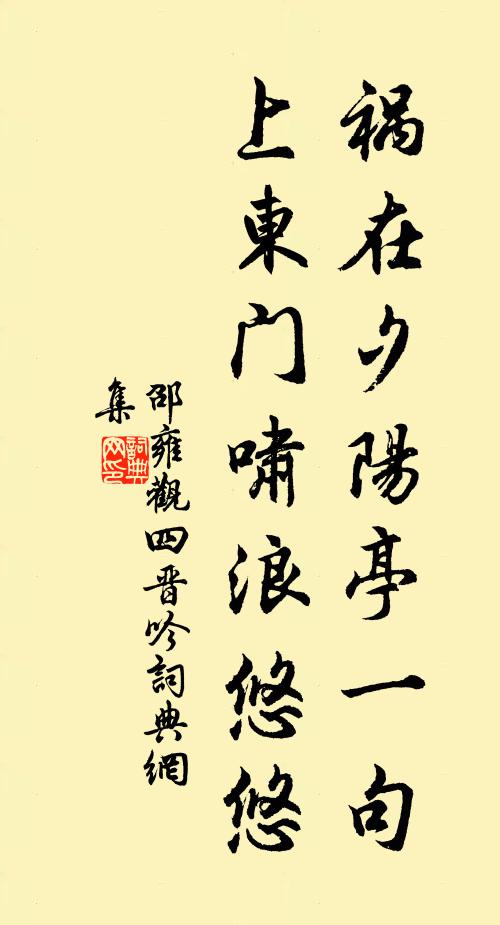 祸在夕陽亭一句
上東门啸浪悠悠
邵雍觀四晋吟詞典網
集
詞典网印